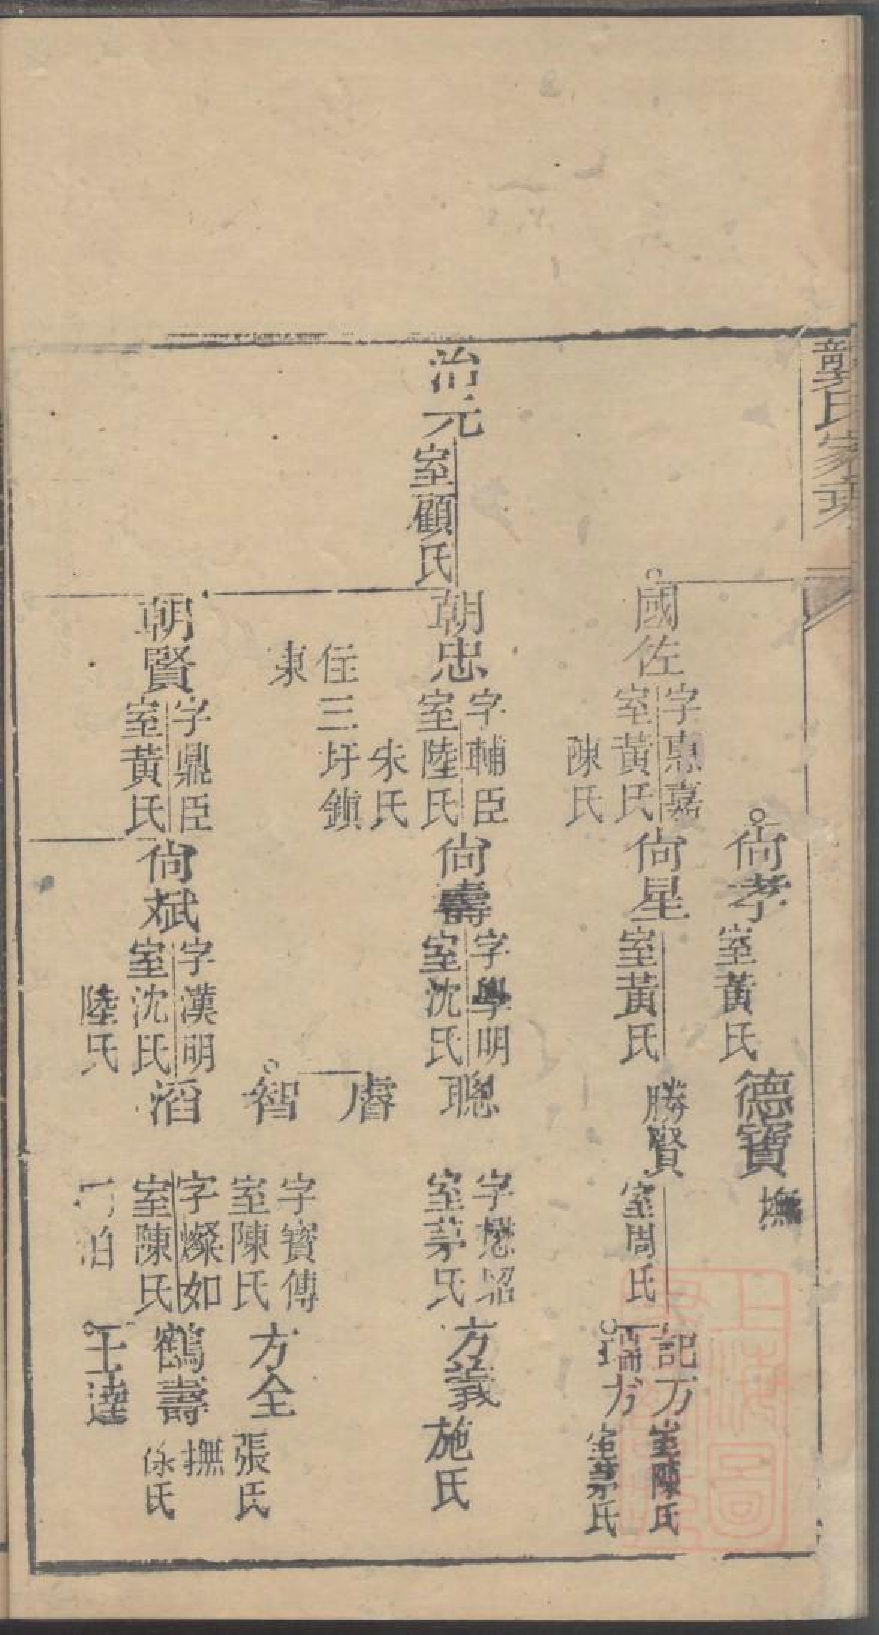 龔氏家乘
尙孝
室黃氏
德寶
撫
國佐
字惠嘉
室黃氏
陳氏
尙星
室黃氏
勝賢
室周氏
記方
室陳氏
瑞方
室茅氏
治元
室顧氏
朝忠
字輔臣
室陸氏
朱氏
住三圩鎭
東
尙壽
字學明
室沈氏
聰
字懋昭
室茅氏
方義
施氏
睿
智
字寶傳
室陳氏
方全
張氏
朝賢
字鼎臣
室黃氏
尙斌
字漢明
室沈氏
陸氏
滔
字燦如
室陳氏
鶴壽
撫
氏
達